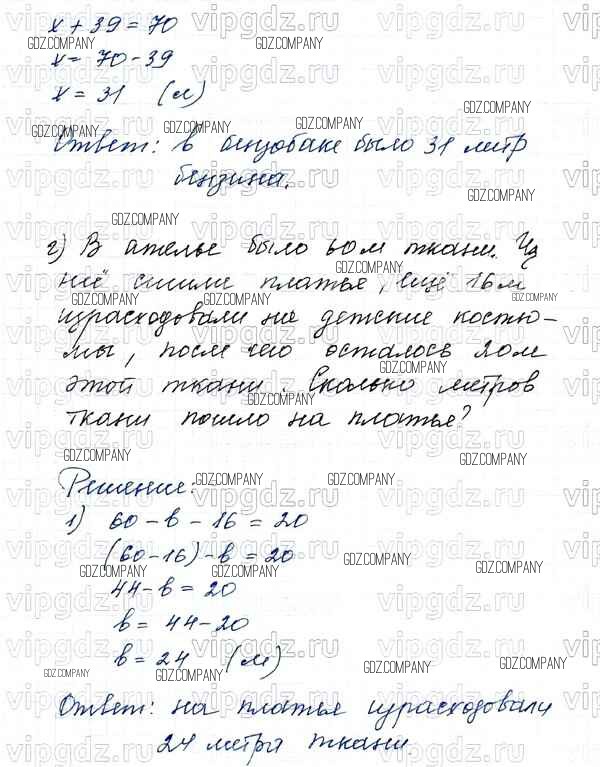 x + 39 = 70
x = 70 - 39
x = 31 (л)
Ответ: в бензобаке было 31 литр
бензина.
г) В ателье было 60м ткани. Из
неё сшили платья, ещё 16м
израсходовали на детские костю-
мы, после чего осталось 20м
этой ткани. Сколько метров
ткани пошло на платья?
Решение:
1) 60 - в - 16 = 20
(60-16) - в = 20
44 - в = 20
в = 44 - 20
в = 24 (м)
Ответ: на платья израсходовали
24 метра ткани.
vipgdz.ru
GDZ.COMPANY